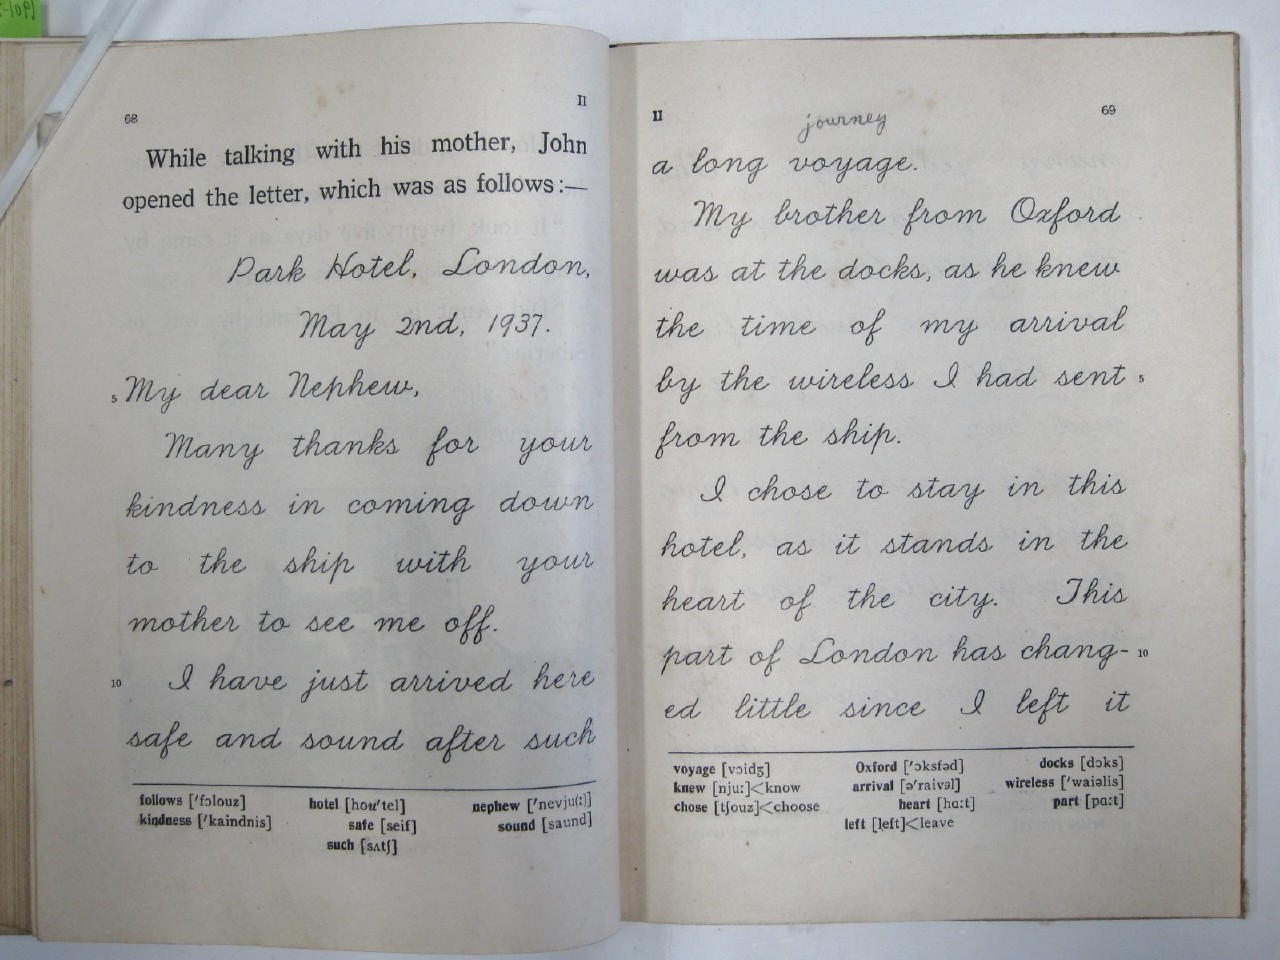 68
II
While talking with his mother, John
opened the letter, which was as follows:—
Park Hotel, London,
May 2nd, 1937.
5 My dear Nephew,
Many thanks for your
kindness in coming down
to the ship with your
mother to see me off.
10 I have just arrived here
safe and sound after such
follows [ˈfɔlouz] hotel [houˈtel] nephew [ˈnevju(ː)]
kindness [ˈkaindnis] safe [seif] sound [saund]
such [sʌtʃ]
II
69
journey
a long voyage.
My brother from Oxford
was at the docks, as he knew
the time of my arrival
by the wireless I had sent 5
from the ship.
I chose to stay in this
hotel, as it stands in the
heart of the city. This
part of London has chang- 10
ed little since I left it
voyage [vɔidʒ] Oxford [ˈɔksfəd] docks [dɔks]
knew [njuː]<know arrival [əˈraivəl] wireless [ˈwaiəlis]
chose [tʃouz]<choose heart [hɑːt] part [pɑːt]
left [left]<leave